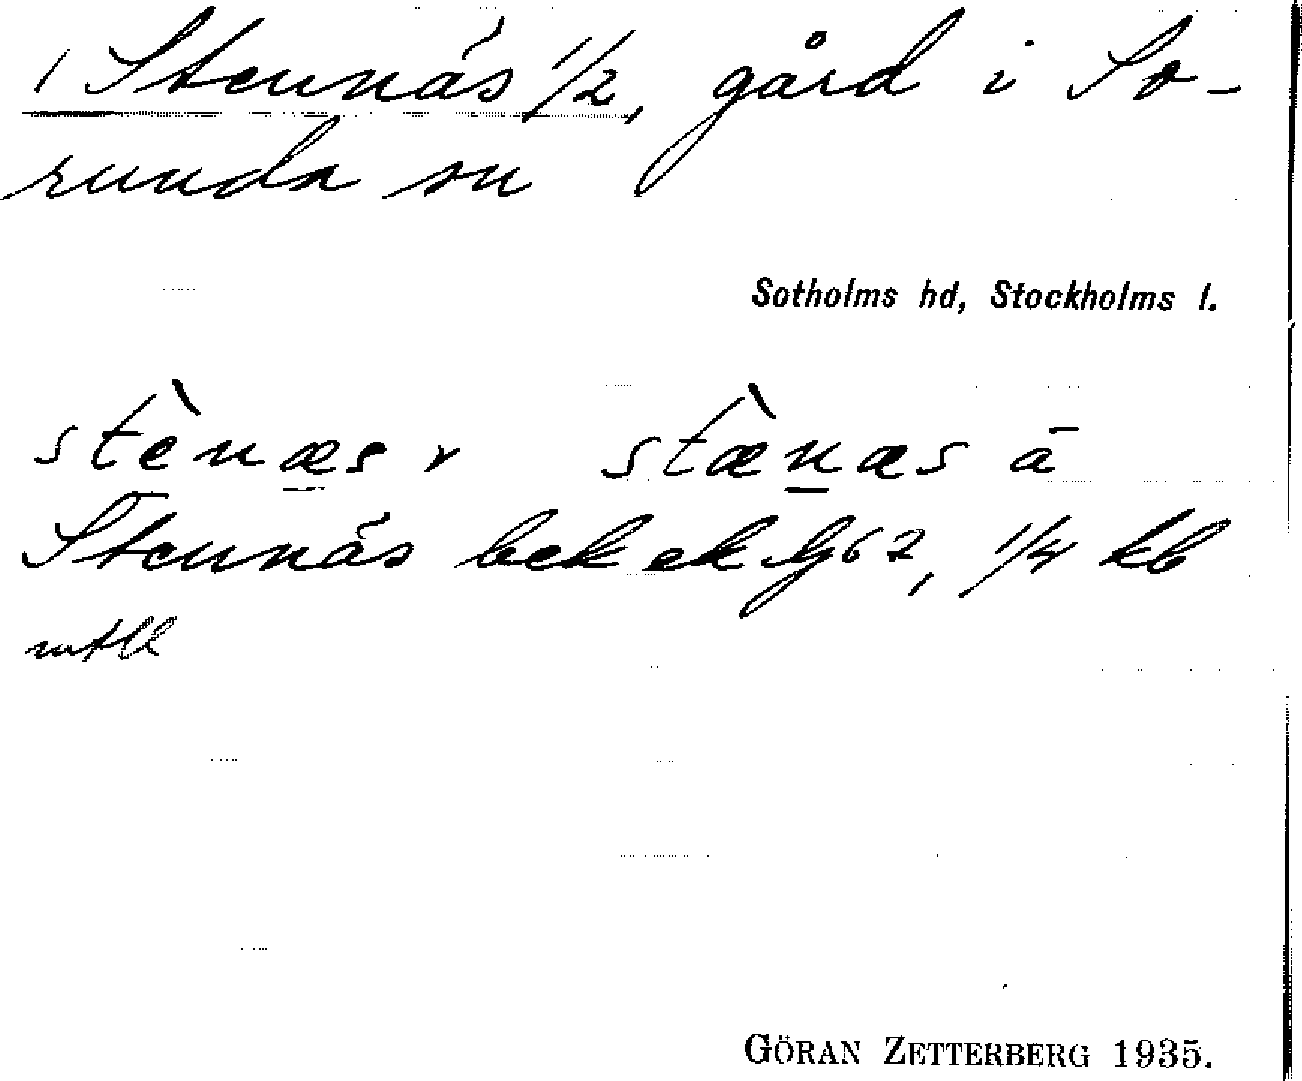 Stennäs 1/2, gård i So-
runda sn
Sotholms hd, Stockholms l.
stènæs r stæ̀næs ä
Stennäs bek ek 62, 1/4 kb
mtll
GÖRAN ZETTERBERG 1935.